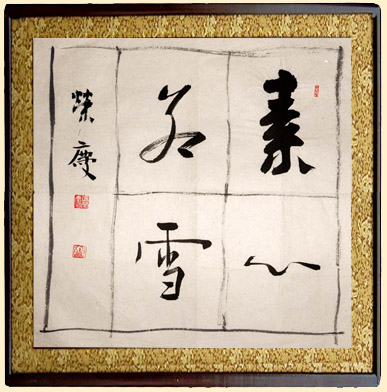 素心
若雪
榮慶